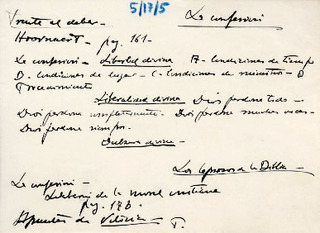 5/17/5
Frente al deber - La confesión
Hoornaert - pag. 161 -
La confesión - Libertad divina A - Condiciones de tiempo
B - Condiciones de lugar - C - Condiciones de ministro - D
Procedimiento
Liberalidad divina - Dios perdona todo -
Dios perdona completamente - Dios perdona muchas veces -
Dios perdona siempre -
divina -
Los leprosos de la Biblia -
La confesión -
de la moral cristiana
pag. 173 -
Apuntes de